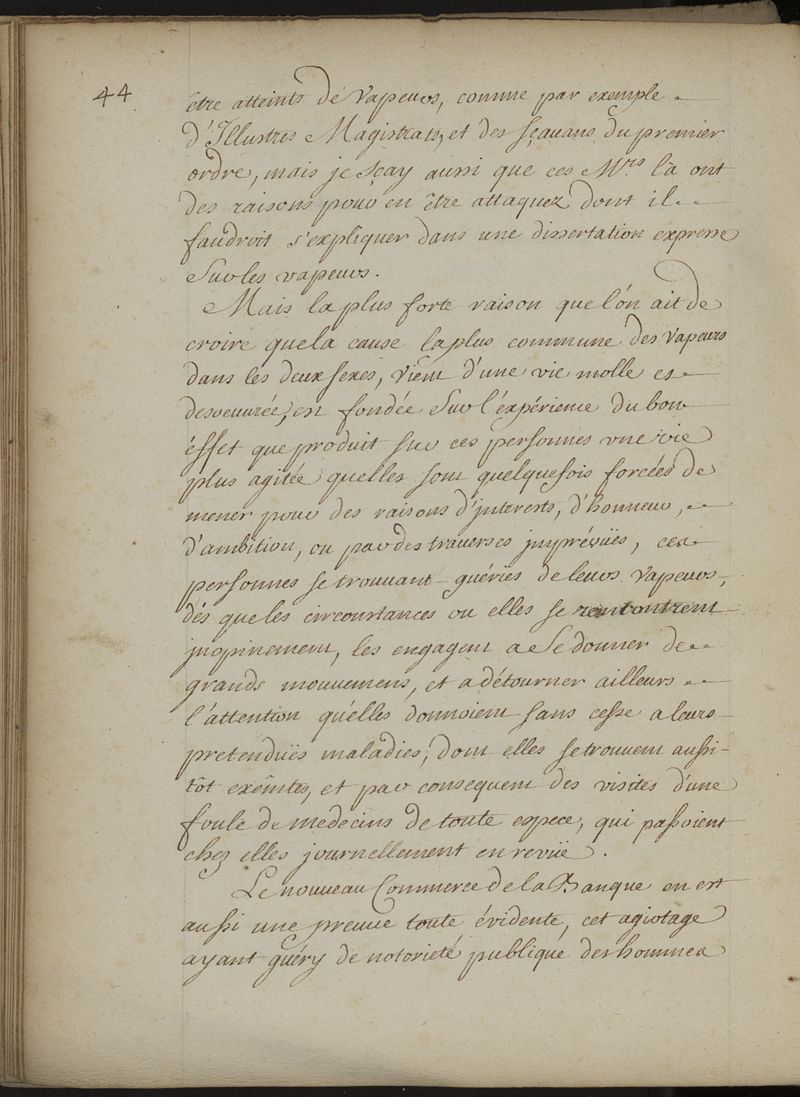 44
être atteints de Vapeurs, comme par exemple
d'Illustres Magistrats, et des sçavans du premier
ordre, mais je sçay aussi que ces M.rs là ont
des raisons pour en être attaquez dont il
faudroit s'expliquer dans une dissertation expresse
sur les vapeurs.
Mais la plus forte raison que l'ón ait de
croire que la cause la plus commune des Vapeurs
dans les deux sexes, Vient d'une vie molle et
desoeuvrée, est fondée sur l'expérience du bon
éffet que produit sur ces personnes une vie
plus agitée quelles sont quelquefois forcées de
mener pour des raisons d'jnterests, d'honneur,
d'ambition, ou par des traverses jmprévües, ces
personnes se trouvant guéries de leurs Vapeurs,
dés que les circonstances ou elles se rencontrent
jnopinement, les engagent a se donner de
grands mouvemens, et a détourner ailleurs
l'attention qu'elles donnoient sans cesse a leurs
pretendües maladies, dont elles se trouvent aussi-
tôt exêmtes, et par consequent des visites d'une
foule de medecins de toute espece, qui passoient
chez elles journellement en revüe.
Le nouveau Commerce de la Banque en est
aussi une preuve toute évidente, cet agiotage
ayant guéry de notorieté publique des hommes